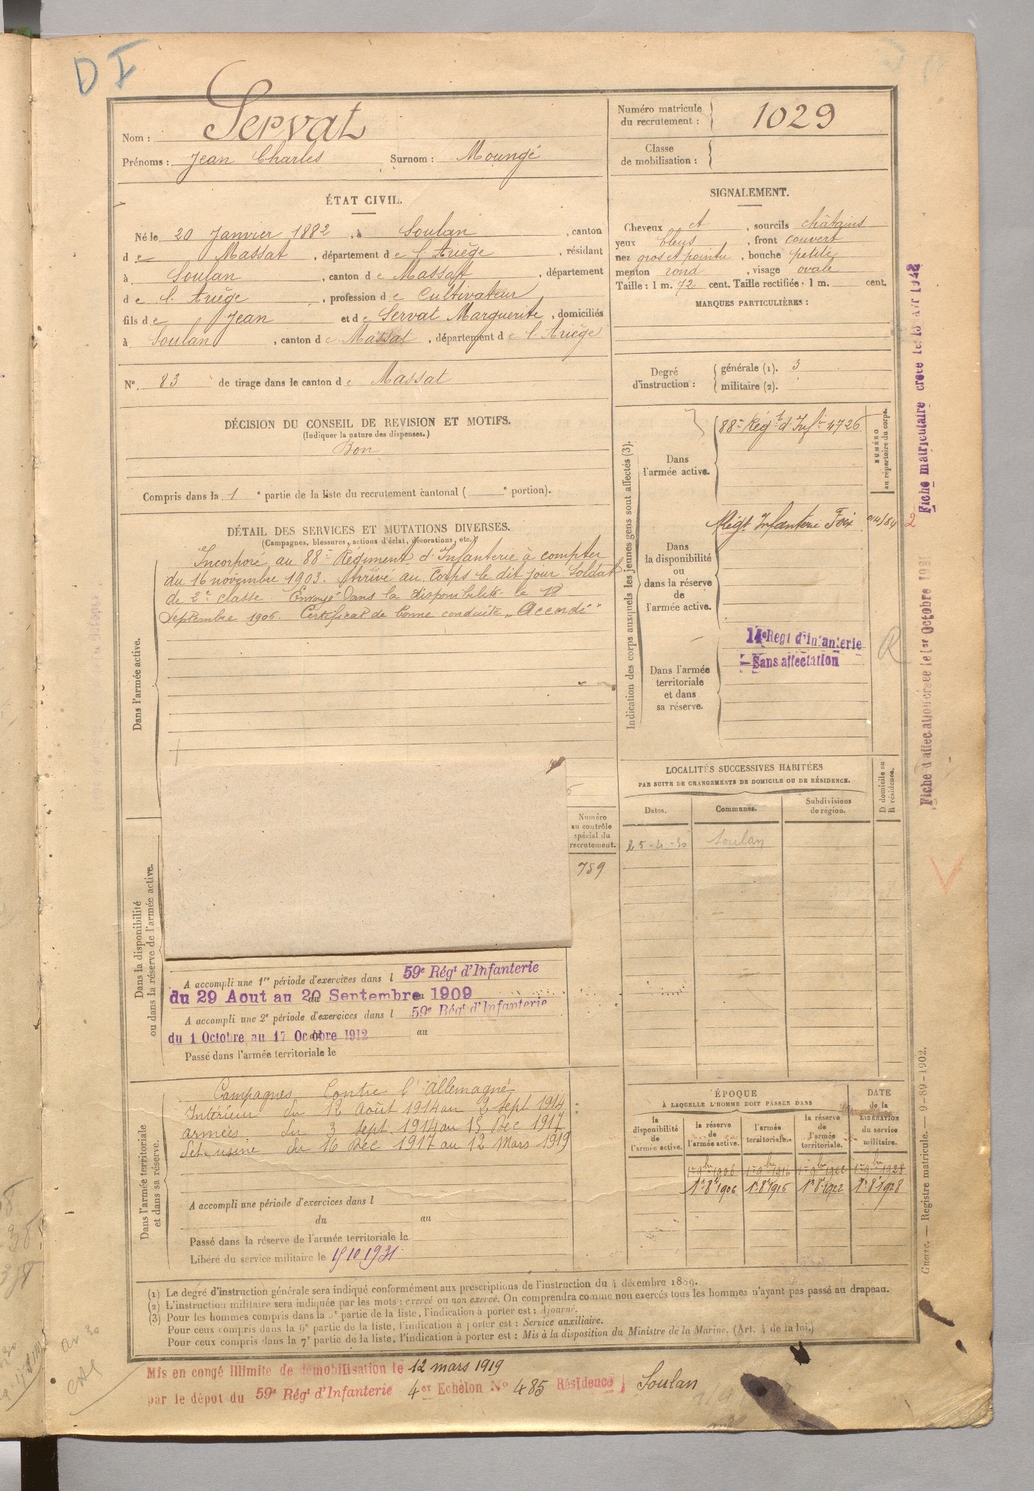 D I
Nom : Servat
Prénoms : Jean Charles Surnom : Moungé
Numéro matricule du recrutement : 1029
Classe de mobilisation :
ÉTAT CIVIL.
Né le 20 Janvier 1882, à Soulan, canton
de Massat, département de l'Ariège, résidant
à Soulan, canton de Massat, département
de l'Ariège, profession de Cultivateur
fils de Jean et de Servat Marguerite, domiciliés
à Soulan, canton de Massat, département de l'Ariège
N° 83 de tirage dans le canton de Massat
DÉCISION DU CONSEIL DE REVISION ET MOTIFS.
(Indiquer la nature des dispenses.)
Bon
Compris dans la 1e partie de la liste du recrutement cantonal ( portion).
SIGNALEMENT.
Cheveux et, sourcils châtains
yeux bleus, front couvert
nez gros et pointu, bouche petite
menton rond, visage ovale
Taille : 1 m. 72 cent. Taille rectifiée : 1 m. cent.
MARQUES PARTICULIÈRES :
Degré d'instruction : générale (1). 3
militaire (2).
DÉTAIL DES SERVICES ET MUTATIONS DIVERSES.
(Campagnes, blessures, actions d'éclat, décorations, etc.)
Dans l'armée active.
Incorporé au 88e Régiment d'Infanterie à compter
du 16 novembre 1903. Arrivé au Corps le dit jour Soldat
de 2e classe. Envoyé dans la disponibilité le 18
septembre 1906. Certificat de bonne conduite "Accordé"
Indication des corps auxquels les jeunes gens sont affectés (3).
NUMÉRO au répertoire du corps.
Dans l'armée active.
88e Régt d'Infie 4726
Dans la disponibilité ou dans la réserve de l'armée active.
Régt Infanterie Foix
Dans l'armée territoriale et dans sa réserve.
14e Régt d'Infanterie
Sans affectation
R
LOCALITÉS SUCCESSIVES HABITÉES
PAR SUITE DE CHANGEMENTS DE DOMICILE OU DE RÉSIDENCE.
Dates. Communes. Subdivisions de région. D. domicile ou R. résidence.
25-4-30 Soulan
Numéro au contrôle spécial du recrutement.
759
Dans la disponibilité ou dans la réserve de l'armée active.
A accompli une 1re période d'exercices dans l 59e Régt d'Infanterie
du 29 Aout au 20 Septembre 1909
A accompli une 2e période d'exercices dans l 59e Régt d'Infanterie
du 1 Octobre au 17 Octobre 1912 au
Passé dans l'armée territoriale le
Dans l'armée territoriale et dans sa réserve.
Campagnes Contre l'Allemagne
Intérieur du 12 Août 1914 au 2 Sept 1914
armées du 3 Sept 1914 au 15 Déc 1917
Dét usine du 16 Déc 1917 au 12 Mars 1919
A accompli une période d'exercices dans l
du au
Passé dans la réserve de l'armée territoriale le
Libéré du service militaire le 15 10 1931
ÉPOQUE
À LAQUELLE L'HOMME DOIT PASSER DANS
DATE de la LIBÉRATION du service militaire.
la disponibilité de l'armée active. la réserve de l'armée active. l'armée territoriale. la réserve de l'armée territoriale.
1er 8bre 1906 1er 8bre 1916 1er 8bre 1922 1er 8bre 1928
(1) Le degré d'instruction générale sera indiqué conformément aux prescriptions de l'instruction du 4 décembre 1889.
(2) L'instruction militaire sera indiquée par les mots : exercé ou non exercé. On comprendra comme non exercés tous les hommes n'ayant pas passé au drapeau.
(3) Pour les hommes compris dans la 5e partie de la liste, l'indication à porter est : Ajourné.
Pour ceux compris dans la 6e partie de la liste, l'indication à porter est : Service auxiliaire.
Pour ceux compris dans la 7e partie de la liste, l'indication à porter est : Mis à la disposition du Ministre de la Marine. (Art. 4 de la loi.)
Mis en congé illimité de démobilisation le 12 mars 1919
par le dépot du 59e Régt d'Infanterie 4er Echelon N° 485 Résidence Soulan
Fiche matriculaire créée le
Fiche d'affectation créée le 1er Octobre
Guerre. — Registre matricule. — 9-89-1902.